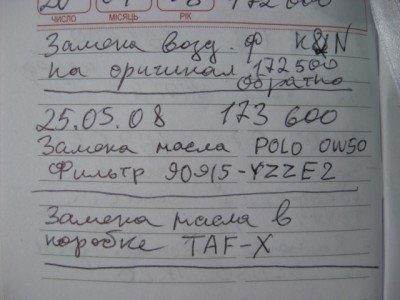 ЧИСЛО МІСЯЦЬ РІК
Замена возд. ф K&N
на оригинал 172500
обратно
25.05.08 173 600
Замена масла POLO 0W50
Фильтр 90915-YZZE2
Замена масла в
коробке TAF-X